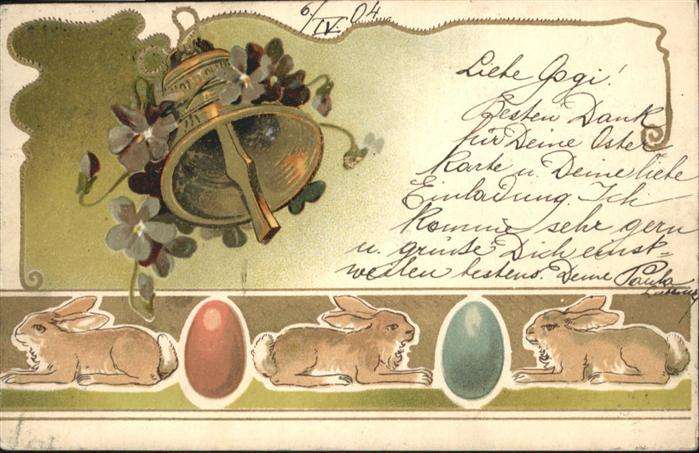 6/IV. 04
Liebe Gogi!
Besten Dank
für Deine Oster-
karte u. Deine liebe
Einladung. Ich
komme sehr gern
u. grüße Dich einst-
weilen bestens. Deine Paula